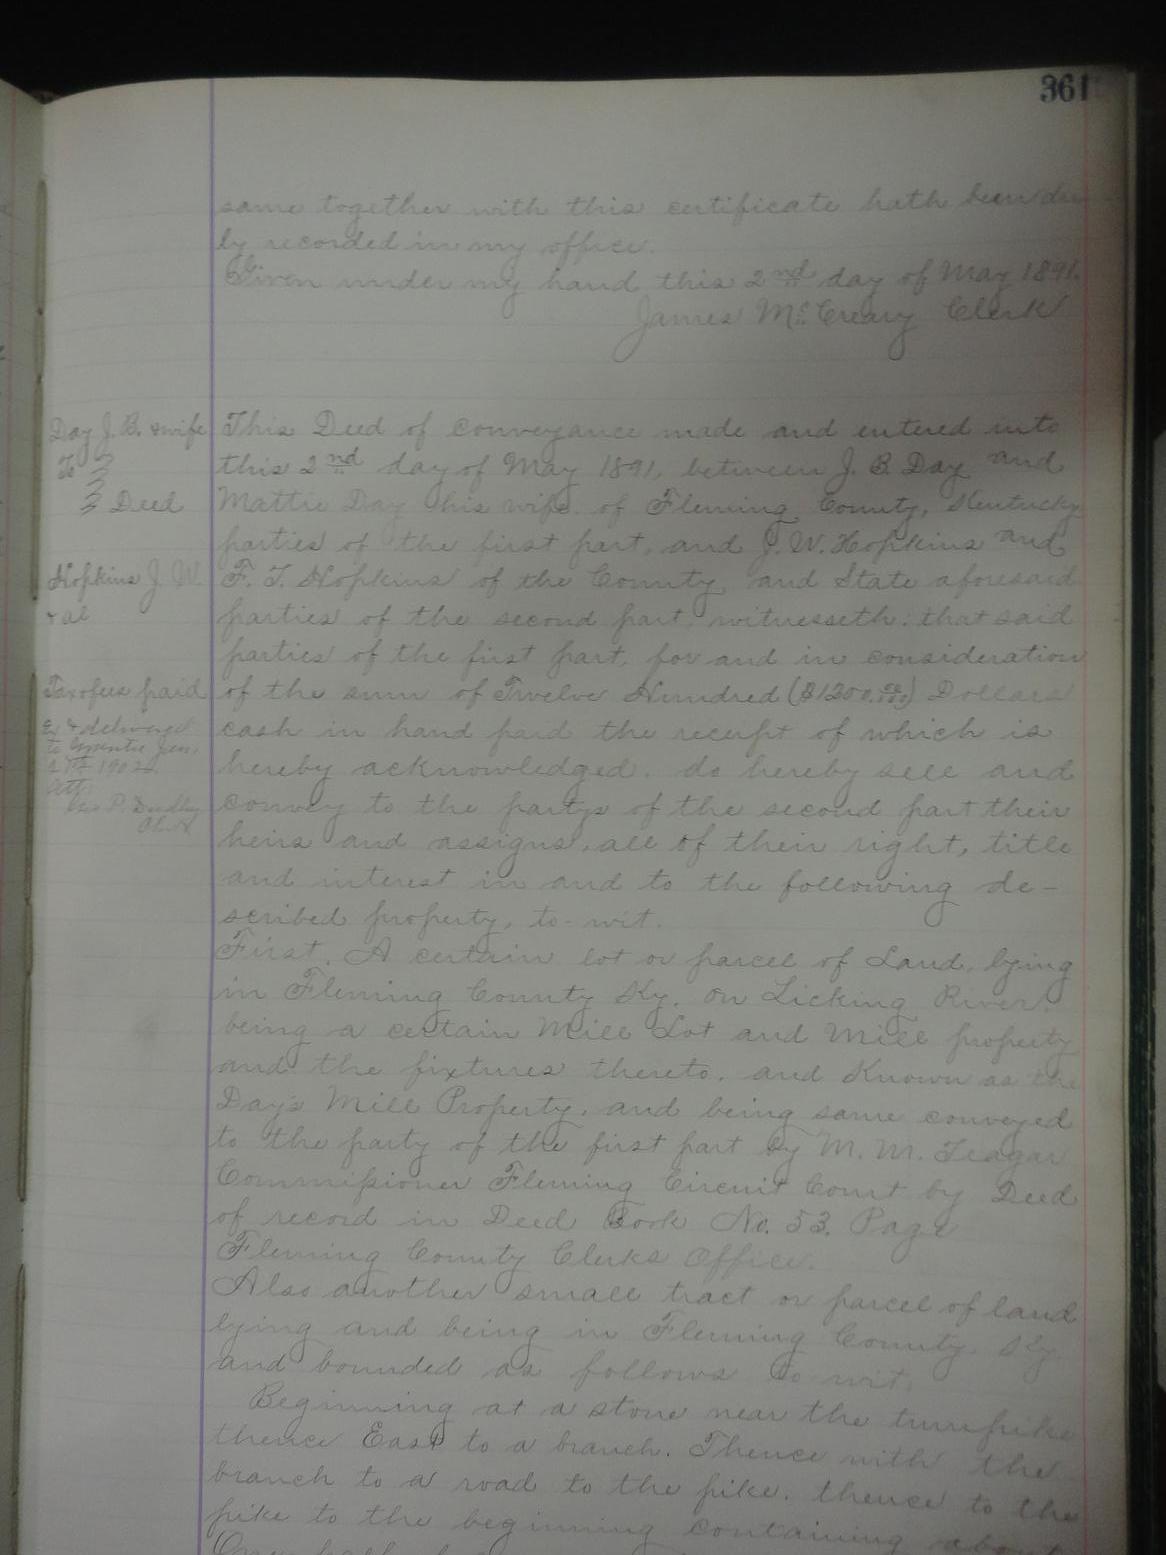 361
same together with this certificate hath been du
ly recorded in my office.
Given under my hand this 2nd day of May 1891.
James McCreary Clerk
Day J. B. & wife
To
Deed
Hopkins J. W.
& al
Tax & fees paid
Ex & delivered
to Grantee Jan.
27th 1902.
Att
P. Dudley
Clerk
This Deed of conveyance made and entered into
this 2nd day of May 1891, between J. B. Day and
Mattie Day his wife of Fleming County, Kentucky
parties of the first part, and J. W. Hopkins and
F. T. Hopkins of the County and State aforesaid
parties of the second part, witnesseth: that said
parties of the first part, for and in consideration
of the sum of Twelve Hundred ($1200.00/100) Dollars
cash in hand paid the receipt of which is
hereby acknowledged. do hereby sell and
convey to the partys of the second part their
heirs and assigns, all of their right, title
and interest in and to the following de-
scribed property, to-wit.
First. A certain lot or parcel of Land, lying
in Fleming County Ky. on Licking River.
being a certain Mill Lot and Mill property
and the fixtures thereto. and Known as the
Day's Mill Property, and being same conveyed
to the party of the first part by M. M. Teagar
Commissioner Fleming Circuit Court by Deed
of record in Deed Book No. 53. Page
Fleming County Clerks Office.
Also another small tract or parcel of land
lying and being in Fleming County. Ky
and bounded as follows to wit.
Beginning at a stone near the turnpike
thence East to a branch. Thence with the
branch to a road to the pike. thence to the
pike to the beginning containing about